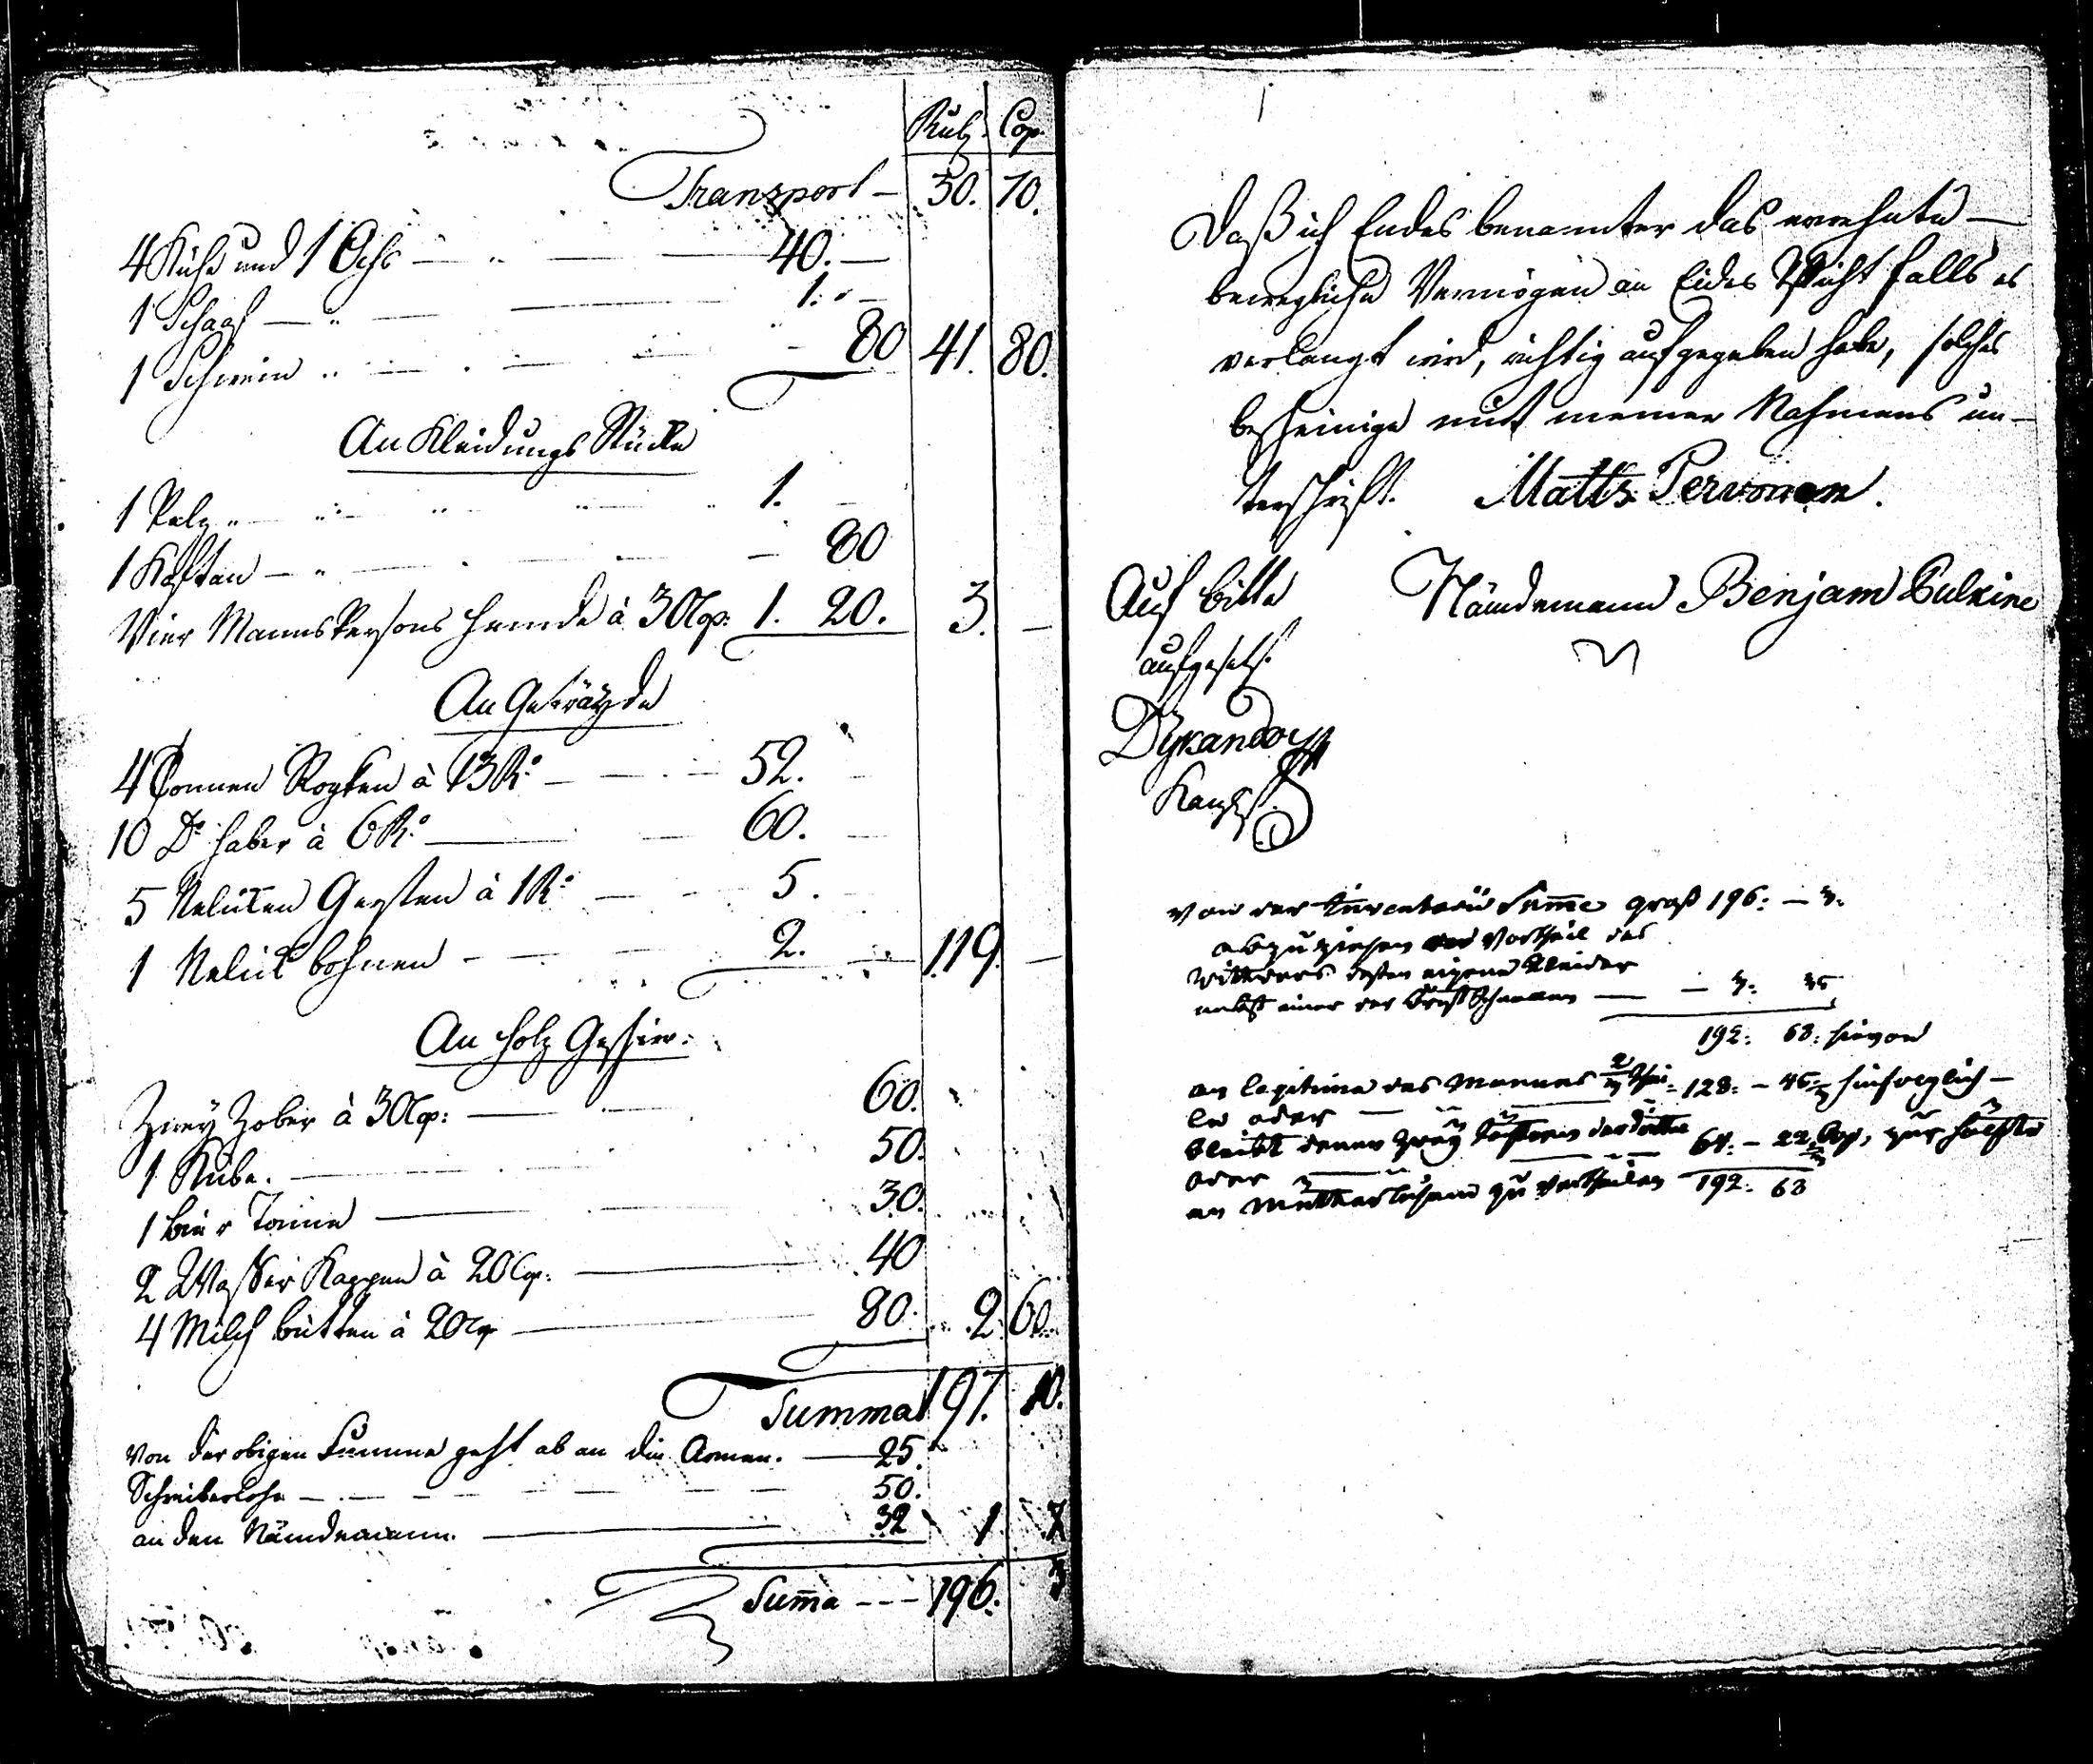 Rub. Cop.
Transport — 30. 70.
4 Kühe und 1 Ochs — 40. —
1 Schaaf — 1. —
1 Schwein — 80 41. 80.
An Kleidungs Stücke
1 Pelz — 1. —
1 Kaftan — 80
Vier Manns Persons Hemde à 30 Cop: 1. 20. 3. —
An Geträyde
4 Tonnen Rogken à 13 R: — 52. —
10 Do Haber à 6 R: — 60. —
5 Gersten à 1 R: — 5. —
1 bohnen — 2. — 119. —
An Holz Geschirr:
Zwey Zober à 30 Cop: — 60.
1 Kube. — 50.
1 bier Tonne — 30.
2 Wasser Kappen à 20 Cop: — 40
4 Milch bütten à 20 Cop — 80. 2. 60.
Summa 197. 10.
Von der obigen Summe geht ab an die Armen. — 25.
Schreiberlohn — 50.
an den Nämdemann. — 32 1 7
Summa --- 196. 3
Daß ich Endes benannter das erwehnte —
bewegliche Vermögen an Eides Pflicht falls es
verlangt wird, richtig aufgegeben habe, solches
bescheinige mit meiner Nahmens un-
terschrift. Matts Pervonen.
Auf bitte
aufgesetzt.
Nämdemann Benjam Pulkine
Kanzlist.
Von der Inventarii Summe groß 196: — 3.
abzuziehen Vortheil des
Wittwers dessen eigene Kleider
nebst einer der — 3: 35
192: 68: hievon
an legitima des Mannes 2/3 Thei- 128: — 45 1/3 hinfolglich —
le oder
bleibt denen Zwey Töchtern der Dritte 64: — 22 2/3 Cop, zur Hälfte
oder
an zu vertheilen 192: 68